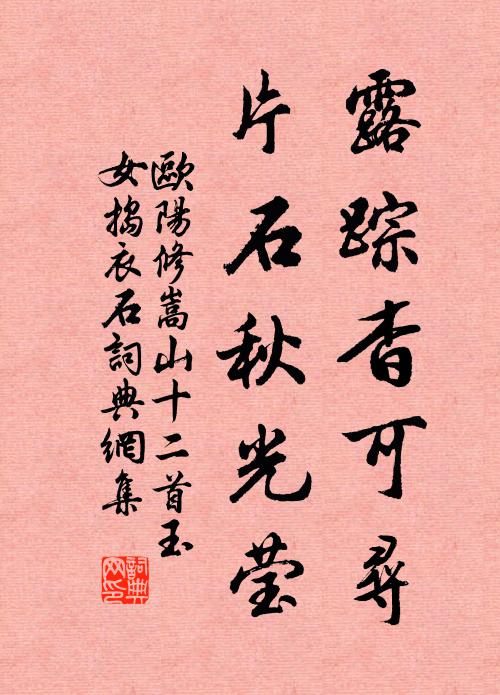 露踪杳可尋
片石秋光莹
歐陽修嵩山十二首玉
女搗衣石詞典網集
詞典
网印